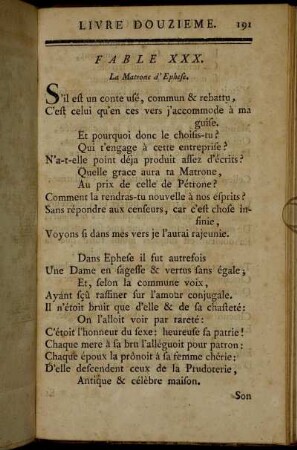 LIVRE DOUZIEME. 191
FABLE XXX.
La Matrone d'Ephese.
S'il est un conte usé, commun & rebattu,
C'est celui qu'en ces vers j'accommode à ma
guise.
Et pourquoi donc le choisis-tu?
Qui t'engage à cette entreprise?
N'a-t-elle point déja produit assez d'écrits?
Quelle grace aura ta Matrone,
Au prix de celle de Pétrone?
Comment la rendras-tu nouvelle à nos esprits?
Sans répondre aux censeurs, car c'est chose in-
finie,
Voyons si dans mes vers je l'aurai rajeunie.
Dans Ephese il fut autrefois
Une Dame en sagesse & vertus sans égale;
Et, selon la commune voix,
Ayant sçû raffiner sur l'amour conjugale.
Il n'étoit bruit que d'elle & de sa chasteté:
On l'alloit voir par rareté:
C'étoit l'honneur du sexe: heureuse sa patrie!
Chaque mere à sa bru l'alléguoit pour patron:
Chaque époux la prônoit à sa femme chérie:
D'elle descendent ceux de la Prudoterie,
Antique & célèbre maison.
Son